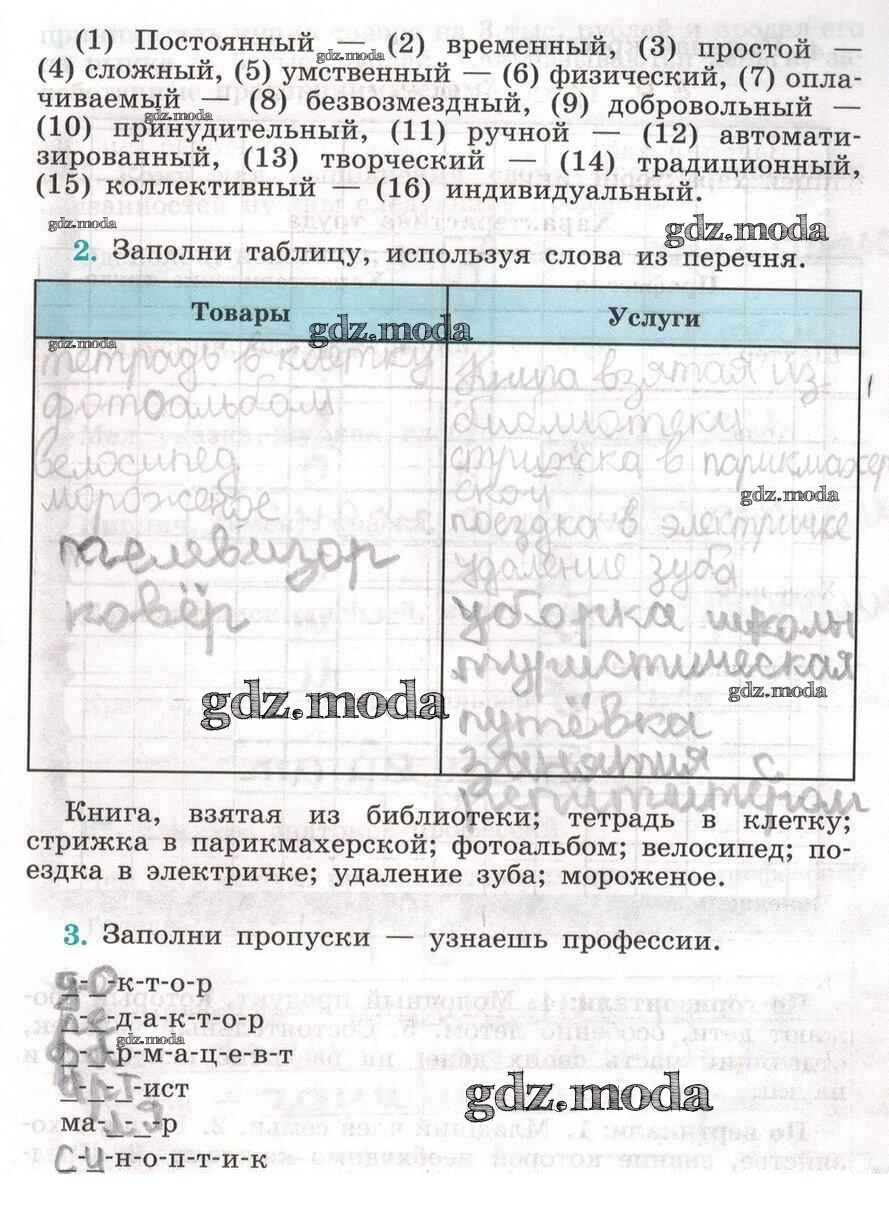 (1) Постоянный — (2) временный, (3) простой —
gdz.moda
(4) сложный, (5) умственный — (6) физический, (7) опла-
чиваемый — (8) безвозмездный, (9) добровольный —
gdz.moda
(10) принудительный, (11) ручной — (12) автомати-
зированный, (13) творческий — (14) традиционный,
(15) коллективный — (16) индивидуальный.
gdz.moda
gdz.moda
2. Заполни таблицу, используя слова из перечня.
Товары
gdz.moda
Услуги
gdz.moda
тетрадь в клетку
фотоальбом
велосипед
мороженое
телевизор
ковёр
книга взятая из
библиотеки
стрижка в парикмахер
ской
gdz.moda
поездка в электричке
удаление зуба
уборка школы
туристическая
gdz.moda
путёвка
занятия с
репетитером
gdz.moda
Книга, взятая из библиотеки; тетрадь в клетку;
стрижка в парикмахерской; фотоальбом; велосипед; по-
ездка в электричке; удаление зуба; мороженое.
3. Заполни пропуски — узнаешь профессии.
д-о-к-т-о-р
р-е-д-а-к-т-о-р
gdz.moda
ф-а-р-м-а-ц-е-в-т
а-р-т-ист
gdz.moda
ма-л-я-р
с-и-н-о-п-т-и-к